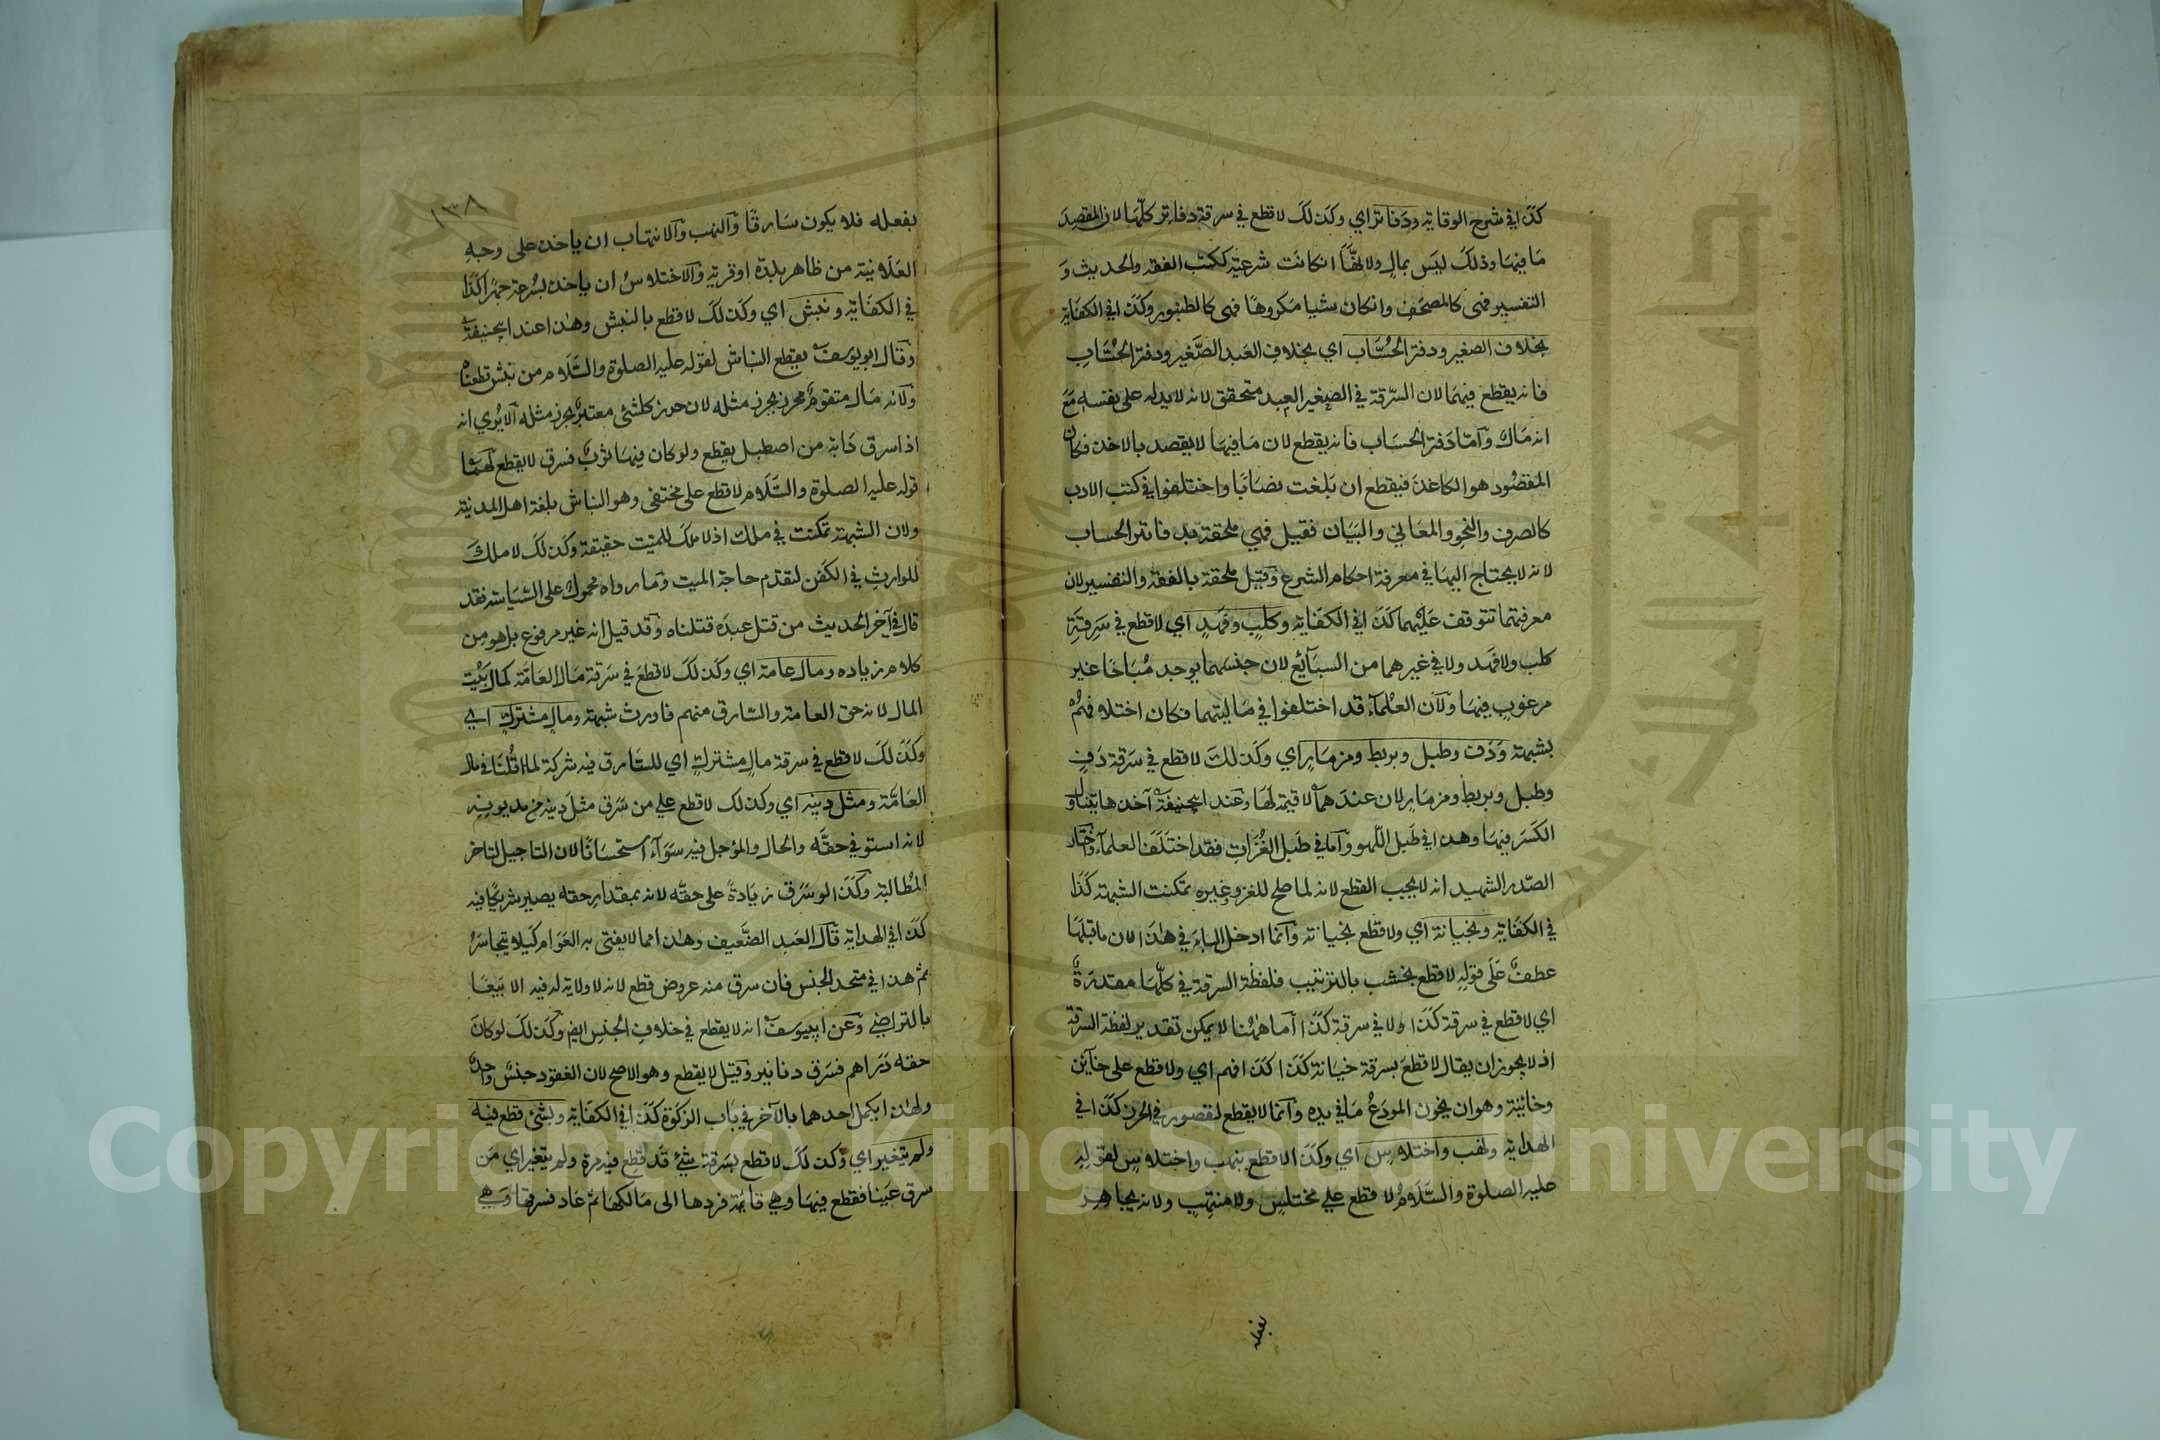 كذا في شرح الوقاية ودفاتر اي وكذلك لا قطع في سرقة دفاتر كلها لان المقصد
ما فيها وذلك ليس بمال ولانها ان كانت شرعية ككتب الفقه والحديث و
التفسير فهى كالمصحف وانكان شيا مكروها فهى كالطنبور وكذا في الكفاية
بخلاف الصغير ودفتر الحساب اي بخلاف العبد الصغير ودفتر الحساب
فانه يقطع فيهما لان السرقة في الصغير العبد متحقق لانه لا يد له على نفسه مع
انه مال واما دفتر الحساب فانه يقطع لان ما فيها لا يقصد بالاخذ فكان
المقصود هو الكاغذ فيقطع ان بلغت نصابا واختلفوا في كتب الادب
كالصرف والنحو والمعاني والبيان فقيل فهي ملحقة بدفاتر الحساب
لانه لا يحتاج اليها في معرفة احكام الشرع وقيل ملحقة بالفقه والتفسير لان
معرفتهما تتوقف عليهما كذا في الكفاية وكلب وفهد اي لا قطع في سرقة
كلب ولا فهد ولا في غيرهما من السبائع لان جنسهما يوجد مباحا غير
مرغوب فيها ولان العلماء قد اختلفوا في ماليتهما فكان اختلافهم
بشبهة ودف وطبل وبربط ومزمار اي وكذلك لا قطع في سرقة دف
وطبل وبربط ومزمار لان عندهما لا قيمة لها وعند ابيحنيفة آخذها يتناول
الكسر فيها وهذا في طبل اللهو واما في طبل الغزات فقد اختلف العلماء واختار
الصدر الشهيد انه لا يجب القطع لانه لما صلح للغزو وغيره تمكنت الشبهة كذا
في الكفاية وبخيانة اي ولا قطع بخيانة وانما ادخل الباء في هذا لان ما قبلها
عطف على قوله لا قطع بخشب بالترتيب فلفظة السرقة في كلها مقدرة
اي لا قطع في سرقة كذا ولا في سرقة كذا اما ههنا لا يمكن تقدير لفظة السرقة
اذ لا يجوز ان يقال لا قطع بسرقة خيانة كذا كذا افهم اي ولا قطع على خآئن
وخائنة وهو ان يخون المودع ما في يده وانما لا يقطع لقصور في الحرز كذا في
الهداية ونهب واختلاس اي وكذا لا قطع بنهب واختلاس لقوله
عليه الصلوة والسلام لا قطع على مختلس ولا منتهب ولانه يجاهر
بفعله
١٣٨
بفعله فلا يكون سارقا والنهب والانتهاب ان ياخذ على وجه
العلانية من ظاهر بلدة او قرية والاختلاس ان ياخذ بسرعة جهرا كذا
في الكفاية ونبش اي وكذلك لا قطع بالنبش وهذا عند ابيحنيفة
وقال ابو يوسف يقطع النباش لقوله عليه الصلوة والسلام من نبش قطعناه
ولانه مال متقوم محرز بحرز مثله لان حرز كلشئ معتبر بحرز مثله الا يري انه
اذا سرق دابة من اصطبل يقطع ولو كان فيها ثوب فسرق لا يقطع لهما
قوله عليه الصلوة والسلام لا قطع على مختفى وهو النباش بلغة اهل المدينة
ولان الشبهة تمكنت في ملك اذ لا ملك للميت حقيقة وكذلك لا ملك
للوارث في الكفن لتقدم حاجة الميت وما رواه محمول على السياسة فقد
قال في آخر الحديث من قتل عبده قتلناه وقد قيل انه غير مرفوع بل هو من
كلام زياده ومال عامة اي وكذلك لا قطع في سرقة مال العامة كمال بيت
المال لانه حق العامة والسارق منهم فاورث شبهة ومال مشترك اي
وكذلك لا قطع في سرقة مال مشترك اي للسارق فيه شركة لما قلنا في مال
العامة ومثل دينه اي وكذلك لا قطع على من سرق مثل دينه من مديونه
لانه استوفي حقه والحال والمؤجل فيه سوآء استحسانا لان التاجيل لتاخر
المطالبة وكذا لو سرق زيادة على حقه لانه بمقدار حقه يصير شريكا فيه
كذا في الهداية قال العبد الضعيف وهذا مما لا يفتى به العوام كيلا يتجاسر
ثم هذا في متحد الجنس فان سرق منه عروض قطع لانه لا ولاية له فيه الا بيعا
بالتراضي وعن ابييوسف انه لا يقطع في خلاف الجنس ايض وكذلك لو كان
حقه دراهم فسرق دنانير وقيل لا يقطع وهو الاصح لان النقود جنس واحد
ولهذا يكمل احدهما بالآخر في باب الزكوة كذا في الكفاية وبشئ قطع فيه
ولم يتغير اي وكذلك لا قطع بسرقة شئ قد قطع فيه مرة ولم يتغير اي من
سرق عينا فقطع فيها وهي قائمة فردها الى مالكها ثم عاد فسرقها وهي
Copyright © King Saud University